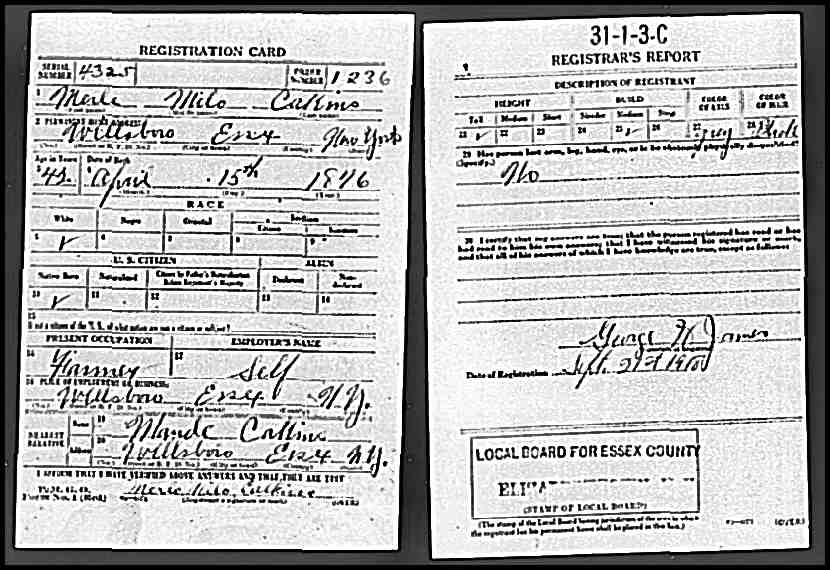 REGISTRATION CARD
SERIAL NUMBER 4325
ORDER NUMBER 1236
1 Merle Milo Calkins
2 PERMANENT HOME ADDRESS:
Willsboro Essex New York
Age in Years Date of Birth
43 April 15th 1876
RACE
White Negro Oriental Indian
Citizen
5 ✓ 6 7 8 9
U. S. CITIZEN ALIEN
Native Born Naturalized Citizen by Father's Naturalization Before Registrant's Majority Declarant Non-declarant
10 ✓ 11 12 13 14
15
If not a citizen of the U. S., of what nation are you a citizen or subject?
PRESENT OCCUPATION EMPLOYER'S NAME
16 Farmer 17 Self
18 PLACE OF EMPLOYMENT OR BUSINESS:
Willsboro Essex N.Y.
NEAREST RELATIVE
Name 19 Maude Calkins
Address 20 Willsboro Essex N.Y.
I AFFIRM THAT I HAVE VERIFIED ABOVE ANSWERS AND THAT THEY ARE TRUE
Merle Milo Calkins
(OVER)
31-1-3-C
REGISTRAR'S REPORT
DESCRIPTION OF REGISTRANT
HEIGHT BUILD COLOR OF EYES COLOR OF HAIR
Tall Medium Short Slender Medium Stout
21 ✓ 22 23 24 25 ✓ 26 27 Grey 28
29 Has person lost arm, leg, hand, eye, or is he obviously physically disqualified?
(Specify.)
No
30 I certify that my answers are true; that the person registered has read or has
had read to him his own answers; that I have witnessed his signature or mark,
and that all of his answers of which I have knowledge are true, except as follows:
George
Date of Registration Sept.
LOCAL BOARD FOR ESSEX COUNTY
(STAMP OF LOCAL BOARD)
(The stamp of the Local Board having jurisdiction of the area in which
the registrant has his permanent home shall be placed in this box.)
(OVER)